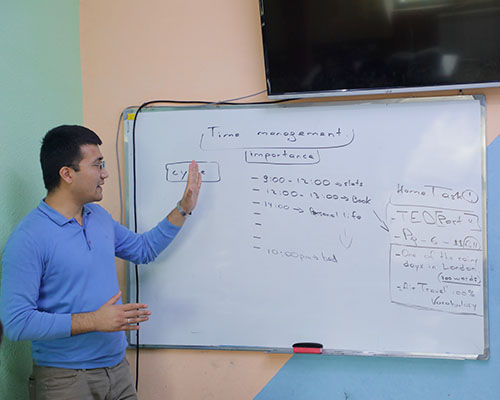 Time management
importance
cycle
- 9:00 - 12:00 → slots
- 12:00 - 13:00 → Book
- 14:00 → Personal life
-
-
-
- 10:00 pm → bed
Home Task!
- TED
- Pg - 6 - 11
- One of the rainy
days in London
- Air Travel 100%
Vocabulary